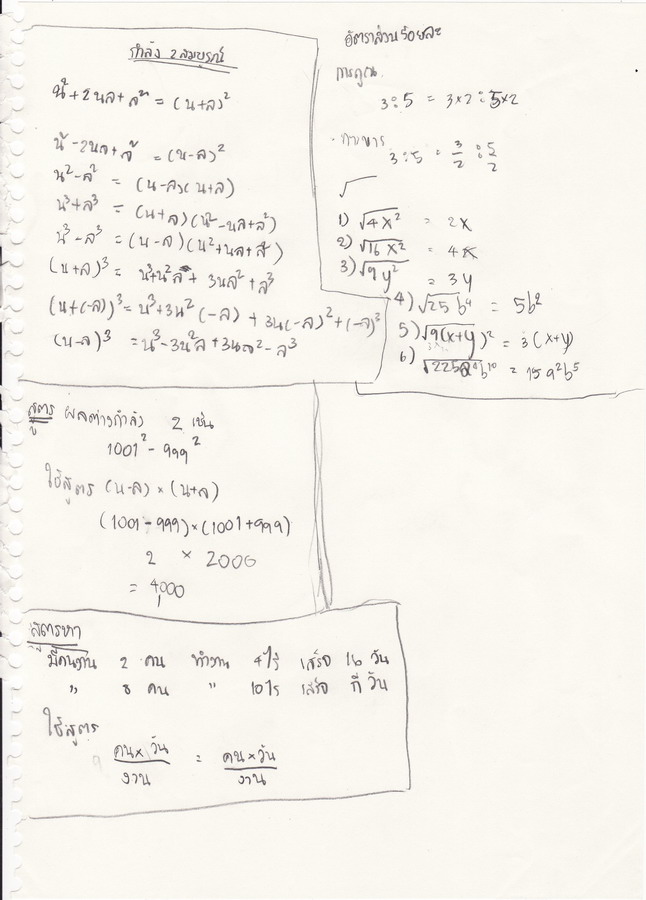 กำลัง 2 สมบูรณ์
น² + 2นล + ล² = (น+ล)²
น² - 2นล + ล² = (น-ล)²
น² - ล² = (น-ล)(น+ล)
น³ + ล³ = (น+ล)(น² - นล + ล²)
น³ - ล³ = (น-ล)(น² + นล + ล²)
(น+ล)³ = น³ + น²ล + 3นล² + ล³
(น+(-ล))³ = น³ + 3น²(-ล) + 3น(-ล)² + (-ล)³
(น-ล)³ = น³ - 3น²ล + 3นล² - ล³
อัตราส่วนร้อยละ
การคูณ
3:5 = 3×2 : 5×2
การหาร
3:5 = 3/2 : 5/2
√
1) √4x² = 2x
2) √16x² = 4x
3) √9y² = 3y
4) √25b⁴ = 5b²
5) √9(x+y)² = 3(x+y)
6) √225a⁴b¹⁰ = 15a²b⁵
สูตร ผลต่างกำลัง 2 เช่น
1001² - 999²
ใช้สูตร (น-ล) × (น+ล)
(1001-999)×(1001+999)
2 × 2000
= 4,000
สูตรหา
มีคนงาน 2 คน ทำงาน 4ไร่ เสร็จ 16 วัน
" 8 คน " 10ไร่ เสร็จ กี่ วัน
ใช้สูตร
คน×วัน/งาน = คน×วัน/งาน